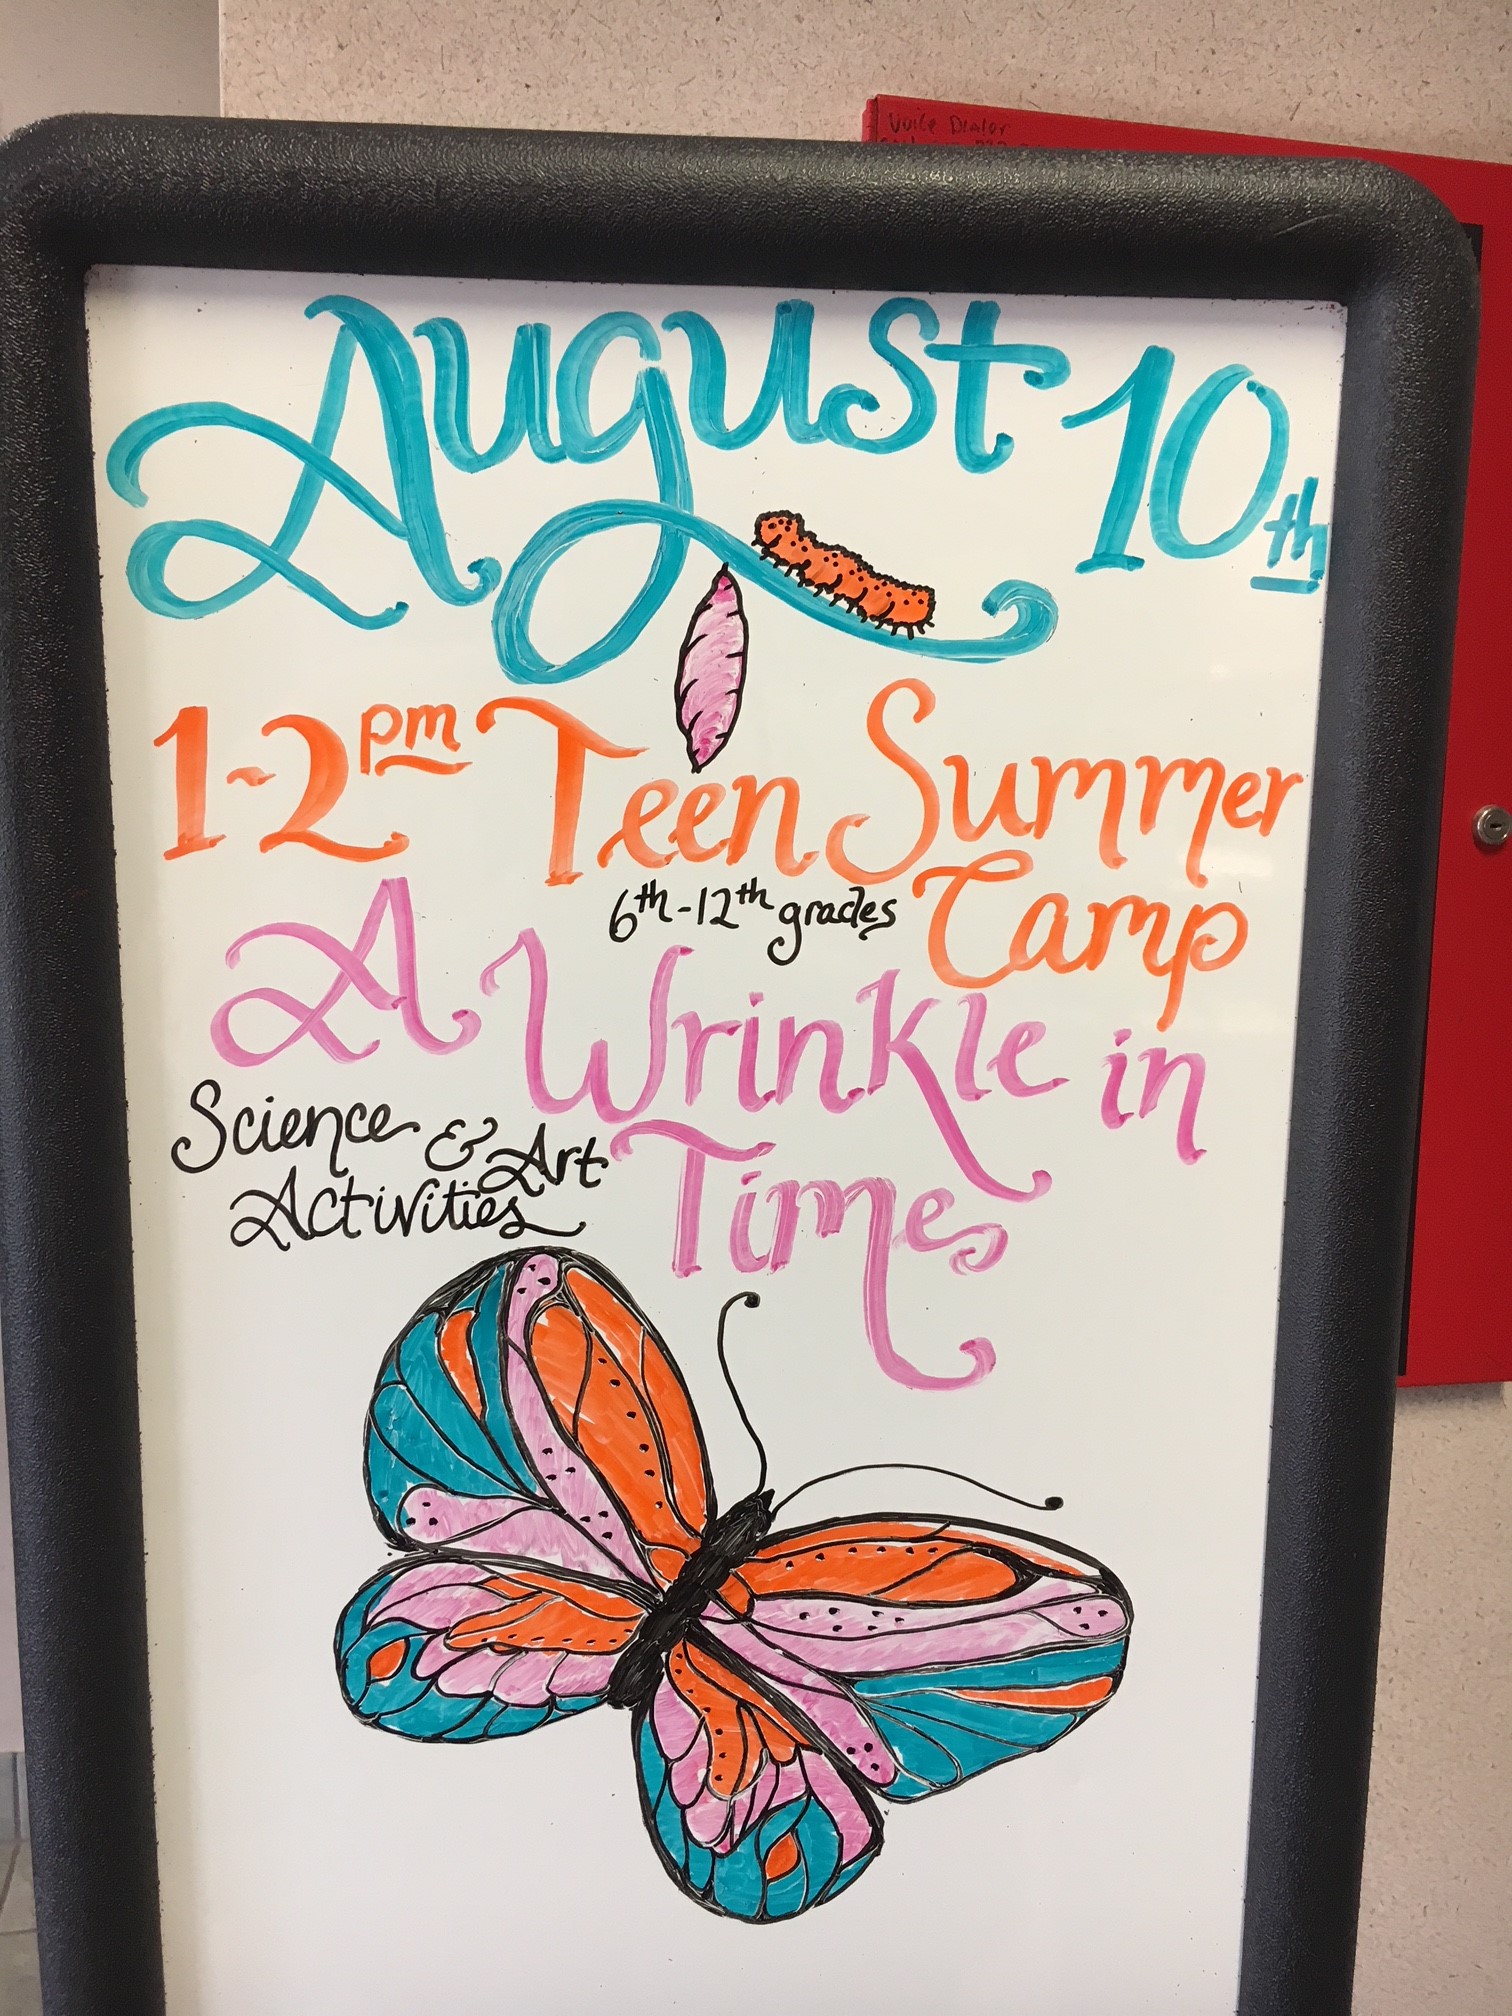 Voice Dialer
August 10th
1-2pm Teen Summer
6th-12th grades Camp
A Wrinkle in
Science & Art
Time
Activities